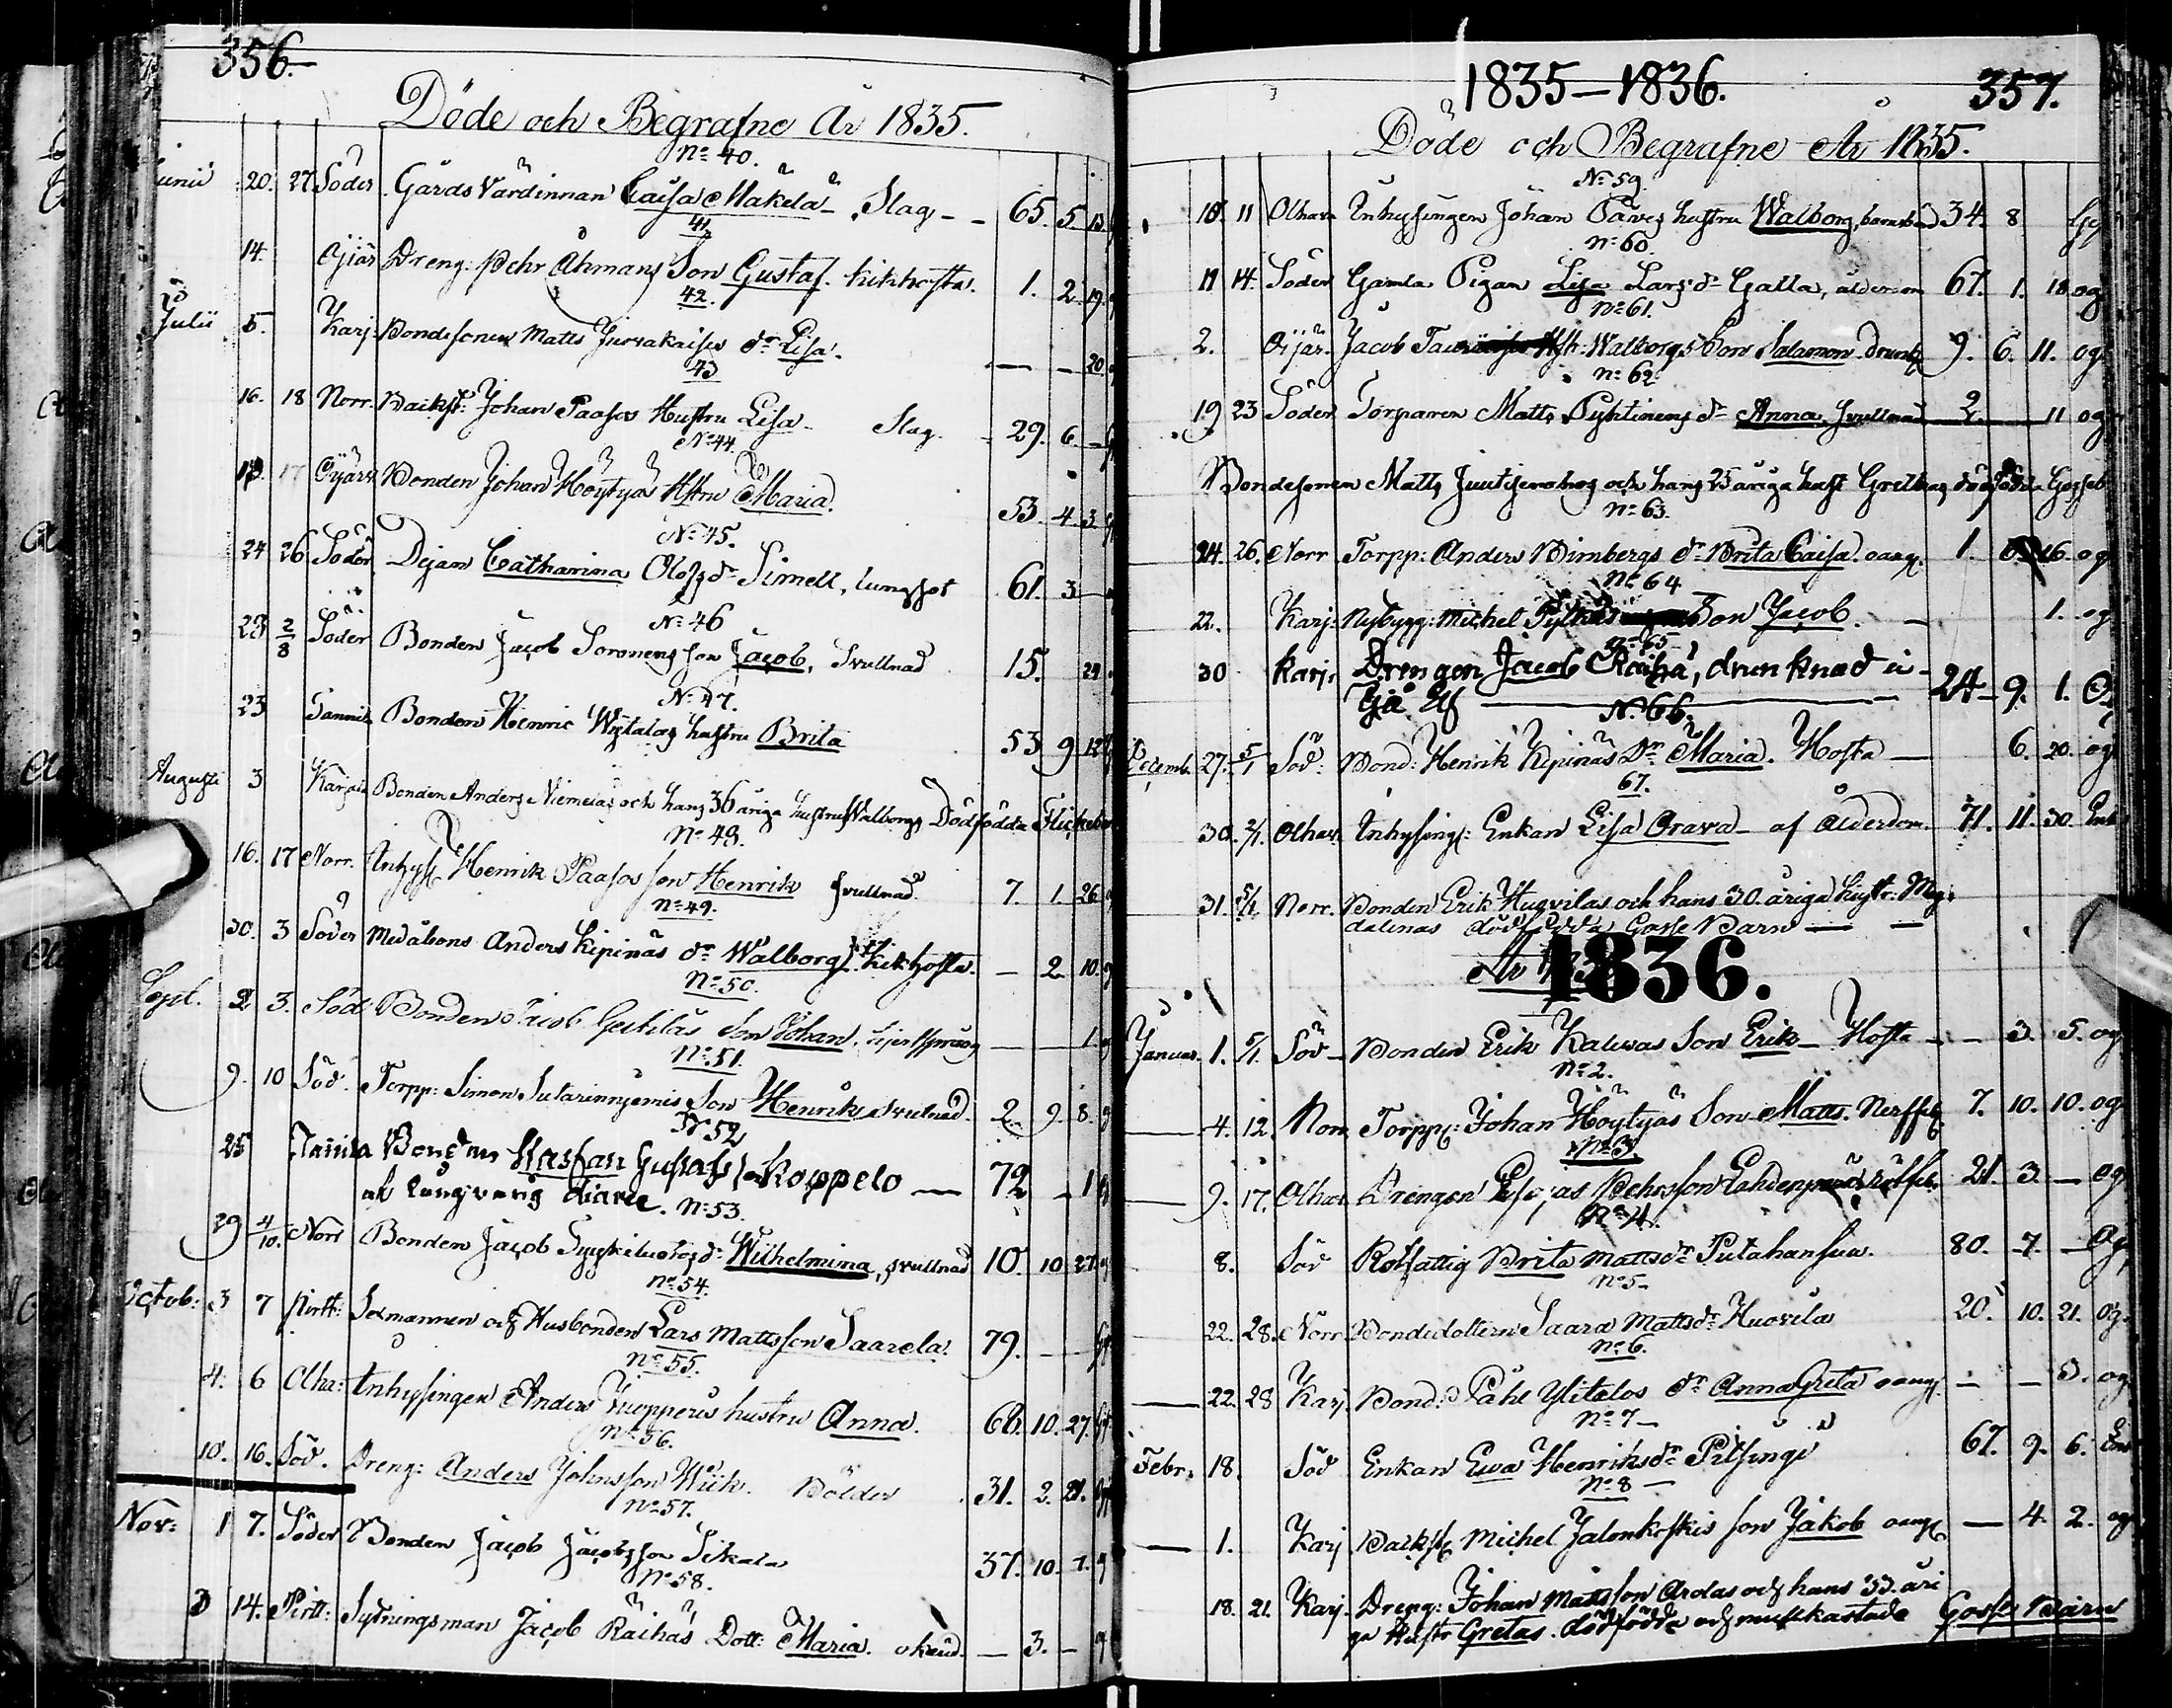 356.
Döde och Begrafne År 1835.
No 40.
Junii 20. 27 Söder Gårds Värdinnan Caisa Mäkelä - Slag - - 65. 5. 13
41.
14. Öijär Dreng: Pehr Åhmans Son Gustaf. kikhosta. 1. 2. 19.
42.
Julii 5. Karj: Bondesonen Matts dr Lisa. — — 20.
43
16. 18 Norr. Backst: Johan Paasos Hustru Lisa - Slag. - 29. 6. —
No 44.
17 Öijär Bonden Johan Höytyäs Hstru Maria. 53. 4. 3.
No 45.
24 26 Söder. Dejan Catharina Olofsdr Simell, lungsot 61. 3 —
No 46
28 2/8 Söder Bonden Jacob Soronens son Jacob, Svullnad 15. 24
No 47.
23 Tannila Bonden Henric hustru Brita 53 9 12
Augusti 3 Karjala Bonden Anders Niemelas och hans 36 åriga hustru Walborgs Dödfödda
No 48.
16. 17 Norr. Inhys: Henrik Paasos son Henrik svullnad. 7. 1. 26
No 49.
30. 3 Söder Medåbons Anders Kipinäs dr Walborg. Kikhosta. — 2. 10.
No 50.
Sept. 2 3. Söd: Bonden Jacob son Johan. — — 1.
No 51.
9. 10 Söd. Torpp: Simon Son Henrik svulnad. 2. 9. 8.
No 52
25 Tannila Bonden Gustafs son Koppelo — 72 — 1
af långvarig diaree. No 53.
29 4/10. Norr Bonden Jacob dr Wilhelmina, svullnad 10. 10 27.
No 54.
Octob: 3 7 Pirtt: Sexmannen och Husbonden Lars Mattsson Saarela. 79. — —
No 55.
4. 6 Olha: Inhysingen Anders Juopperis hustru Anna. 68. 10. 27.
No 56.
10. 16. Söd. Dreng: Anders Johnsson Wiik. Bölder 31. 2. 21.
No 57.
Nov: 1 7. Söder Bonden Jacob Jacobsson Sikala 37. 10. 7.
No 58.
3 14. Pirtt: Sytningsman Jacob Räihäs Dott: Maria. okänd — 3. —
1835—1836. 357.
Döde och Begrafne År 1835.
No 59.
10. 11 Olhava Inhysingen Johan hustru Walborg, barnsbörd 34. 8
No 60.
11 14. Söder Gamla Pigan Lisa Larsdr Galla, ålderdom 67. 1. 18 og
No 61.
2. Öijär. Jacob Hstr: Walborgs Son Salamon drunk. 9. 6. 11. og
No 62.
19 23 Söder Torparen Matts Pyhtinens dr Anna, svullnad 2. — 11 og
Bondesonen Matts och hans 25 åriga hust: Gretas dödfödda Gossebarn
No 63.
24. 26. Norr Torpp: Anders Bimbergs dr Brita Caisa. oang. 1. 16. og
No 64
22. Karj: Nybygg: Michel Son Jacob. — 1. og
No 65
30 Karj. Drengen Jacob Räihä, drunknad i
Ijå Elf — 24 - 9. 1. Og
No 66.
Decemb. 27. 5/1 Söd: Bond: Henrik Kipinäs Dr Maria. Hosta — 6. 20. og
67.
30. 2/1. Olhav. Inhysing: Enkan Lisa Orava - af Ålderdom. 71. 11. 30. Enk
31. 5/1 Norr. Bonden Erik Huovilas och hans 30. åriga hust: Mag-
dalenas dödfödda Gosse Barn — —
År 1836.
Januar. 1. 5/1 Söd - Bonden Erik Kaleuas Son Erik - Hosta - - 3. 5. og
No 2.
4. 12. Norr Torpp: Johan Höytyäs Son Matts. Nerffeb 7. 10. 10. og
No 3.
9. 17. Olhav Drengen Pehrsson 21. 3. — og
No 4.
8. Söd Rotfattig Brita Mattsdr Putahansua. 80. 7. — Og
No 5.
22. 28. Norr. Bondedottern Saara Mattsdr Huovila 20. 10. 21. og
No 6.
22. 28 Karj. Bond: Påhl Ylitalos dr Anna Greta oang. — — 5. og
No 7
Febr. 18. Söd Enkan Ewa Henriksdr Pitsinge 67. 9. 6. Enk
No 8
1. Karj Backst: Michel Jalonkoskis son Jakob oang. — 4. 2. og
18. 21. Karj. Dreng: Johan Mattsson Arolas och hans 33. åri
ga Hustr Gretas dödfödde och missskastade Gosse Barn